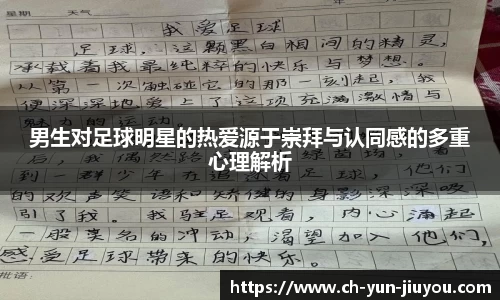 星期 天气
我爱足球
足球,这颗黑白相间的精灵,
承载着我最纯粹的快乐与梦想。
从第一次触碰它的那一刻起,我
便深深地爱上了这项充满激情与
男生对足球明星的热爱源于崇拜与认同感的多重
心理解析
到一群少年在追逐着足球,他们
的欢声笑语和矫健的身影深深吸
引了我。我驻足观看,内心涌起
一股莫名的冲动,渴望加入他们,
感受足球带来的快乐。
批语:
https://www.ch-yun-jiuyou.com